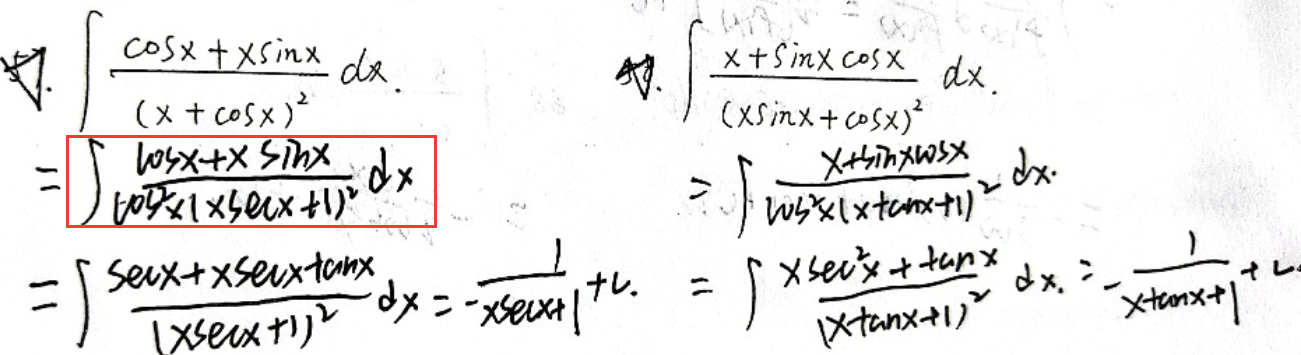 ∫ (cosx + xsinx)/(x + cosx)² dx.
= ∫ (cosx + x sinx)/(cos²x(xsecx+1)²) dx
= ∫ (secx + xsecxtanx)/(xsecx+1)² dx = -1/(xsecx+1) + C.
∫ (x + sinx cosx)/(xsinx + cosx)² dx.
= ∫ (x+sinxcosx)/(cos²x(xtanx+1)²) dx.
= ∫ (xsec²x + tanx)/(xtanx+1)² dx. = -1/(xtanx+1) + C.